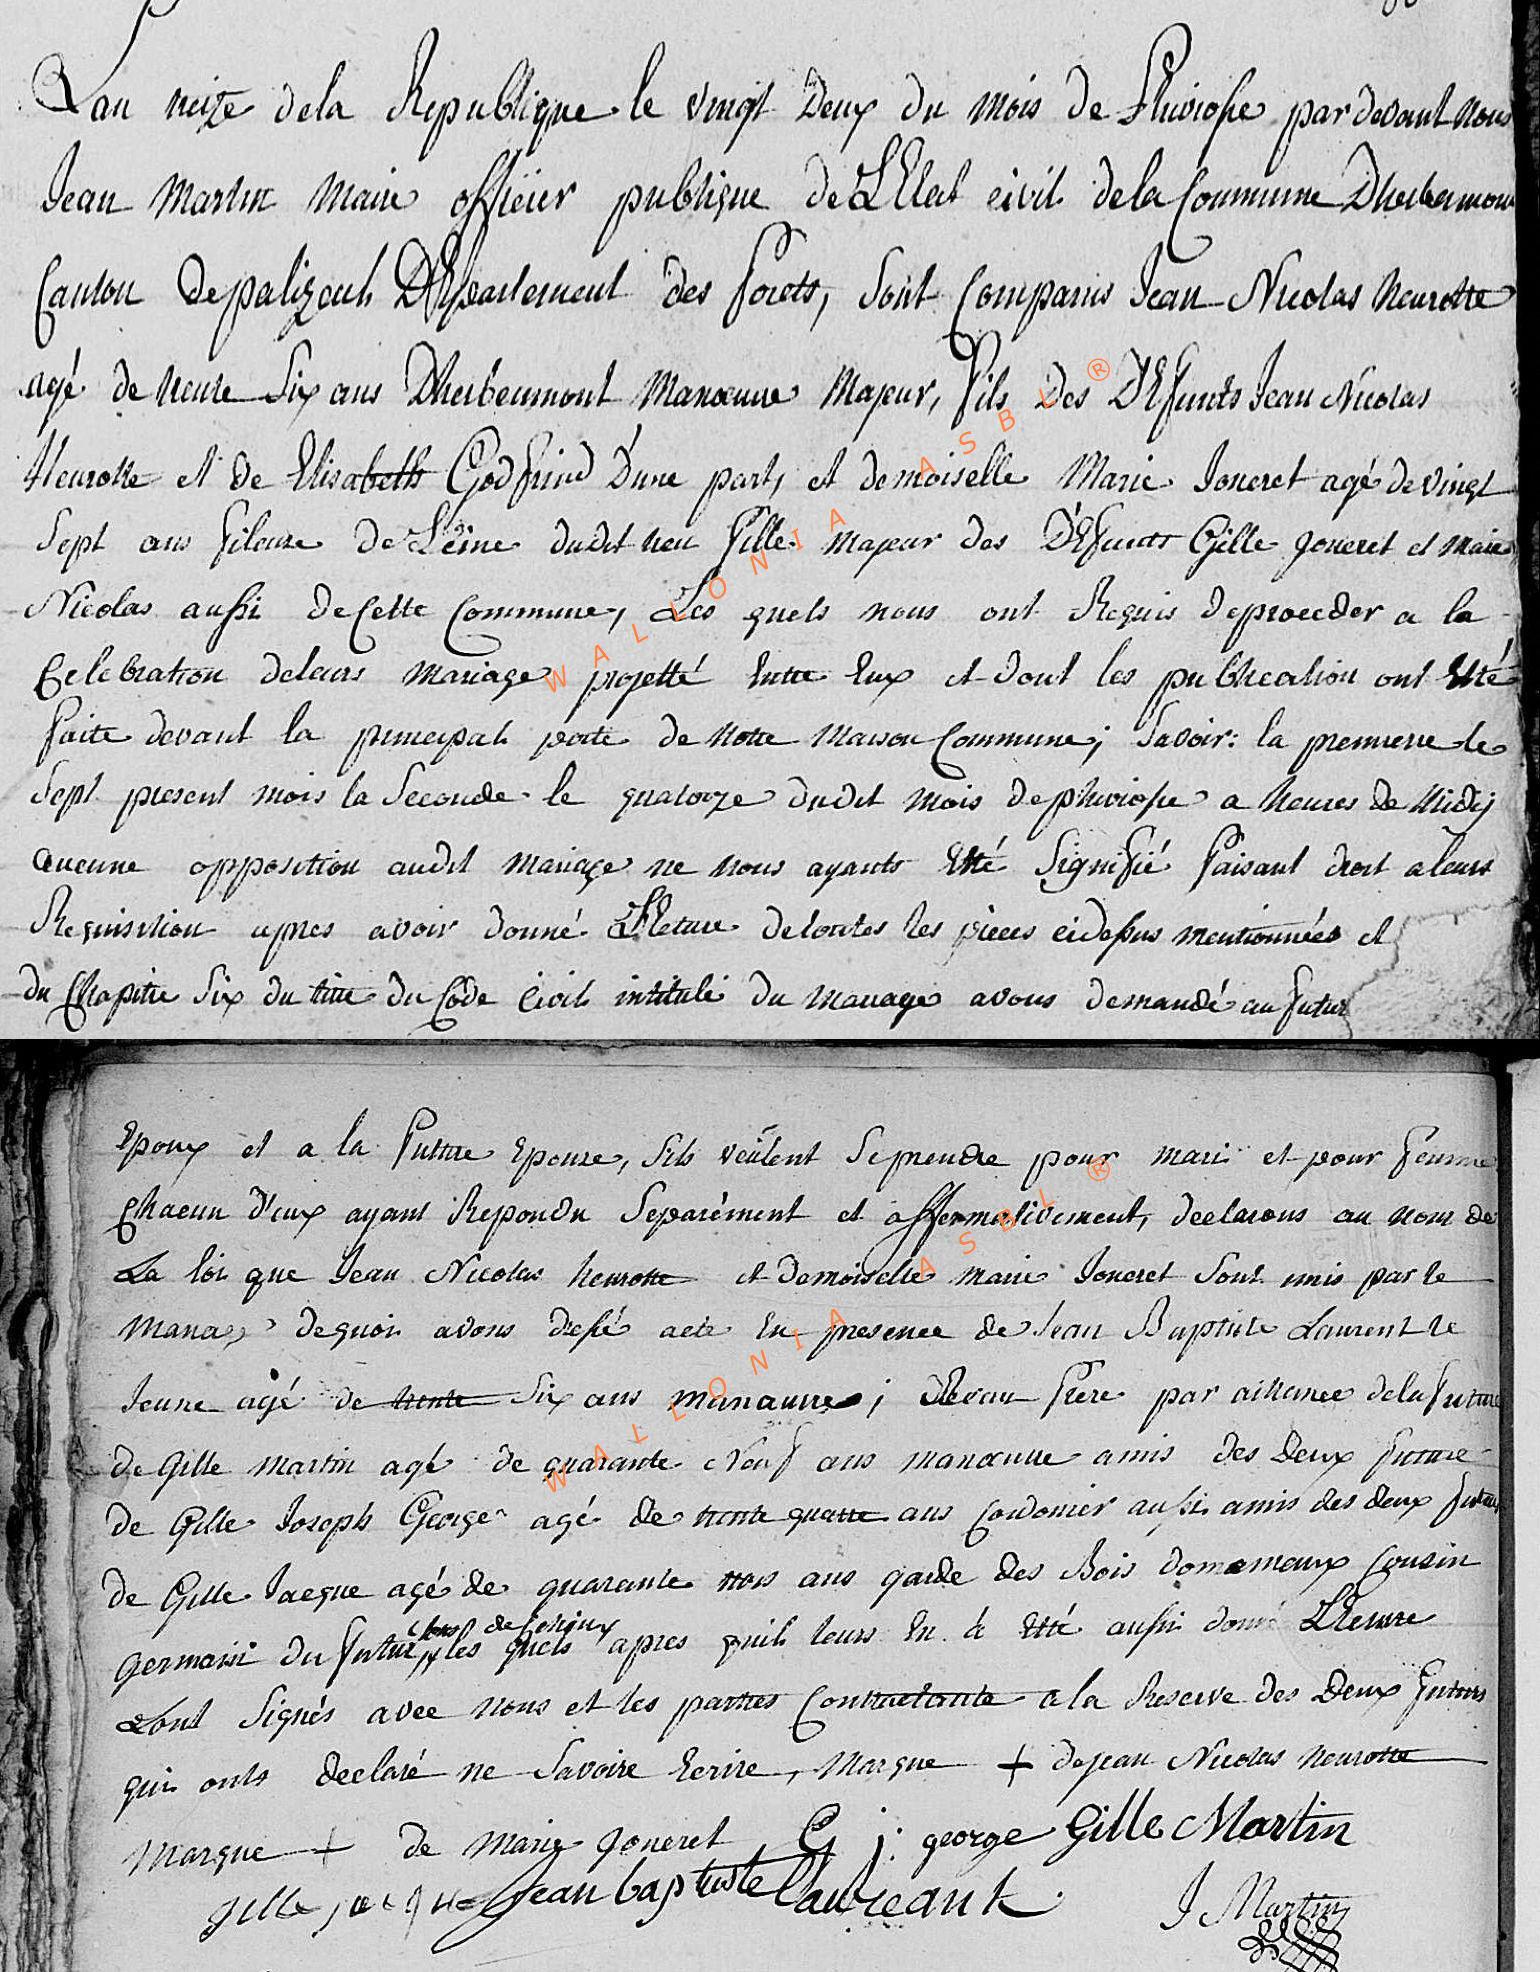 Lan treize dela Republique le vingt Deux du mois de Pluviose par devant Nous
Jean Martin Maire officier publique de LEtat civil dela Commune Dherbeumont
Canton depalizeul DEpartement des forets, sont Comparus Jean Nicolas heurotte
agé de trente Six ans Dherbeumont Manoeuvre Majeur, fils des DEfunts Jean Nicolas
Heurotte et de Elisabeth Godfrind D'une part, et demoiselle Marie Joneret agé de vingt
Sept ans fileuse de Leine dudit lieu fille Majeur des DEfunts Gille Joneret et Marie
Nicolas aussi de Cette Commune, Les quels nous ont Requis deproceder a la
Celebration deleurs Mariage projetté Entre Eux et Dont les publication ont Etté
faite devant la principal porte de notre Maison Commune; Savoir: la premiere le
Sept present mois la Seconde le quatorze dudit mois depluviose a heures de Midy
aucune opposition audit mariage ne nous ayants Etté Signifié faisant droit a leurs
Requisition apres avoir donné LEcture detoutes les pieces cidessus mentionnées et
du Chapitre Six du titre du Code Civil intitulé du Mariage avous demandé au futur
Epoux et a la futture Epouse, Sils veulent Seprendre pour mari et pour femme
Chacun D'eux ayant Repondu Separément et affermativement, declarons au nom de
La loi que Jean Nicolas heurotte et demoiselle marie Joneret Sont unis par le
Maria dequoi avons dressé acte En presence de Jean Baptiste Laurent le
Jeune agé de trente Six ans manoeuvre; Beau frere par alliance dela future
de Gille Martin agé de quarante Neuf ans manoeuvre amis des Deux future
de Gille Joseph George agé de trente quatre ans Cordonier aussi amis des deux futurs
de Gille Jacque agé de quarante trois ans garde des Bois domaineaux Cousin
Germain du futur les quels apres quil leurs En à Etté aussi donné LEcture
Sont Signés avec nous et les parties Contractante a la Reserve des Deux futurs
qui onts declaré ne Savoire Ecrire, Marque + de jean Nicolas heurotte
Marque + de Marie Joneret G j. george Gille Martin
gille jacque jean baptiste Laureant J Martin
WALLONIA ASBL ®
WALLONIA ASBL ®